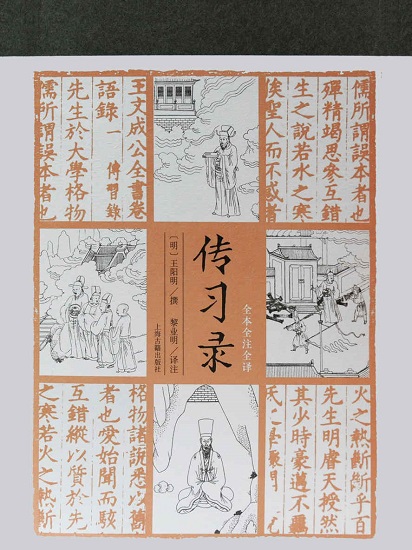 儒所謂誤本者也
殫精竭思參互錯
生之說若水之寒
俟聖人而不惑者
王文成公全書卷
語錄一 傳習錄
先生於大學格物
儒所謂誤本者也
传习录
全本全注全译
〔明〕王阳明／撰 黎业明／译注
上海古籍出版社
火之熱斷斷乎百
先生明睿天授然
其少時豪邁不
格物諸說悉以
者也愛始聞而駭
互錯縱以質於先
之寒若火之熱